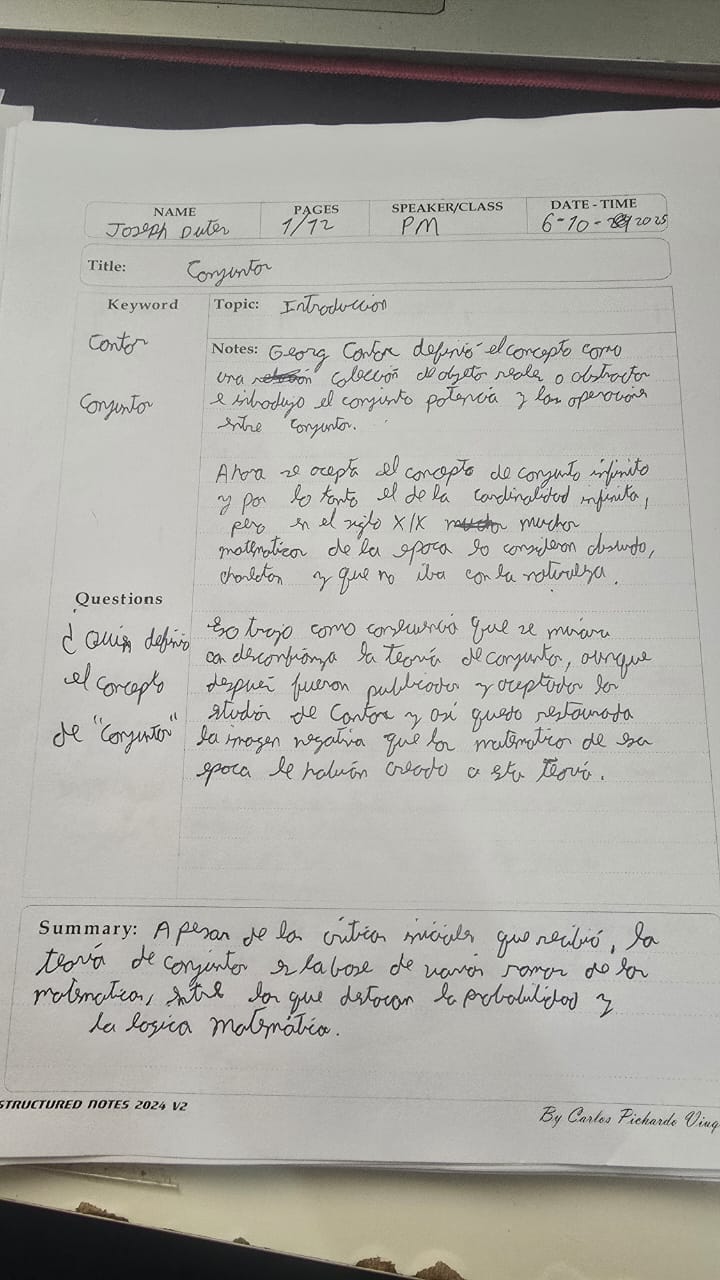 NAME PAGES SPEAKER/CLASS DATE - TIME
Joseph Duter 1/12 PM 6-10-2025
Title: Conjuntos
Keyword Topic: Introduccion
Cantor
Notes: Georg Cantor definió el concepto como
una colección de objetos reales o abstractos
Conjuntos
e introdujo el conjunto potencia y las operaciones
entre conjuntos.
Ahora se acepta el concepto de conjunto infinito
y por lo tanto el de la cardinalidad infinita,
pero en el siglo XIX muchos
matematicos de la epoca lo consideron absurdo,
charlatan y que no iba con la naturaleza.
Questions
¿Quien definio
el concepto
de "Conjuntos"
Eso trajo como consecuencia que se mirara
con desconfianza la teoría de conjuntos, aunque
después fueron publicados y aceptados los
studios de Cantor y así quedo restaurada
la imagen negativa que los matematicos de esa
epoca le habían creado a esta teoría.
Summary: A pesar de las críticas iniciales que recibió, la
teoría de conjuntos es la base de varias ramas de las
matematicas, entre las que destacan la probabilidad y
la logica matemática.
STRUCTURED NOTES 2024 V2
By Carlos Pichardo